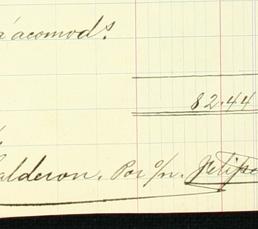 acomods.
82.44
alderon. Por o/n. Felipe